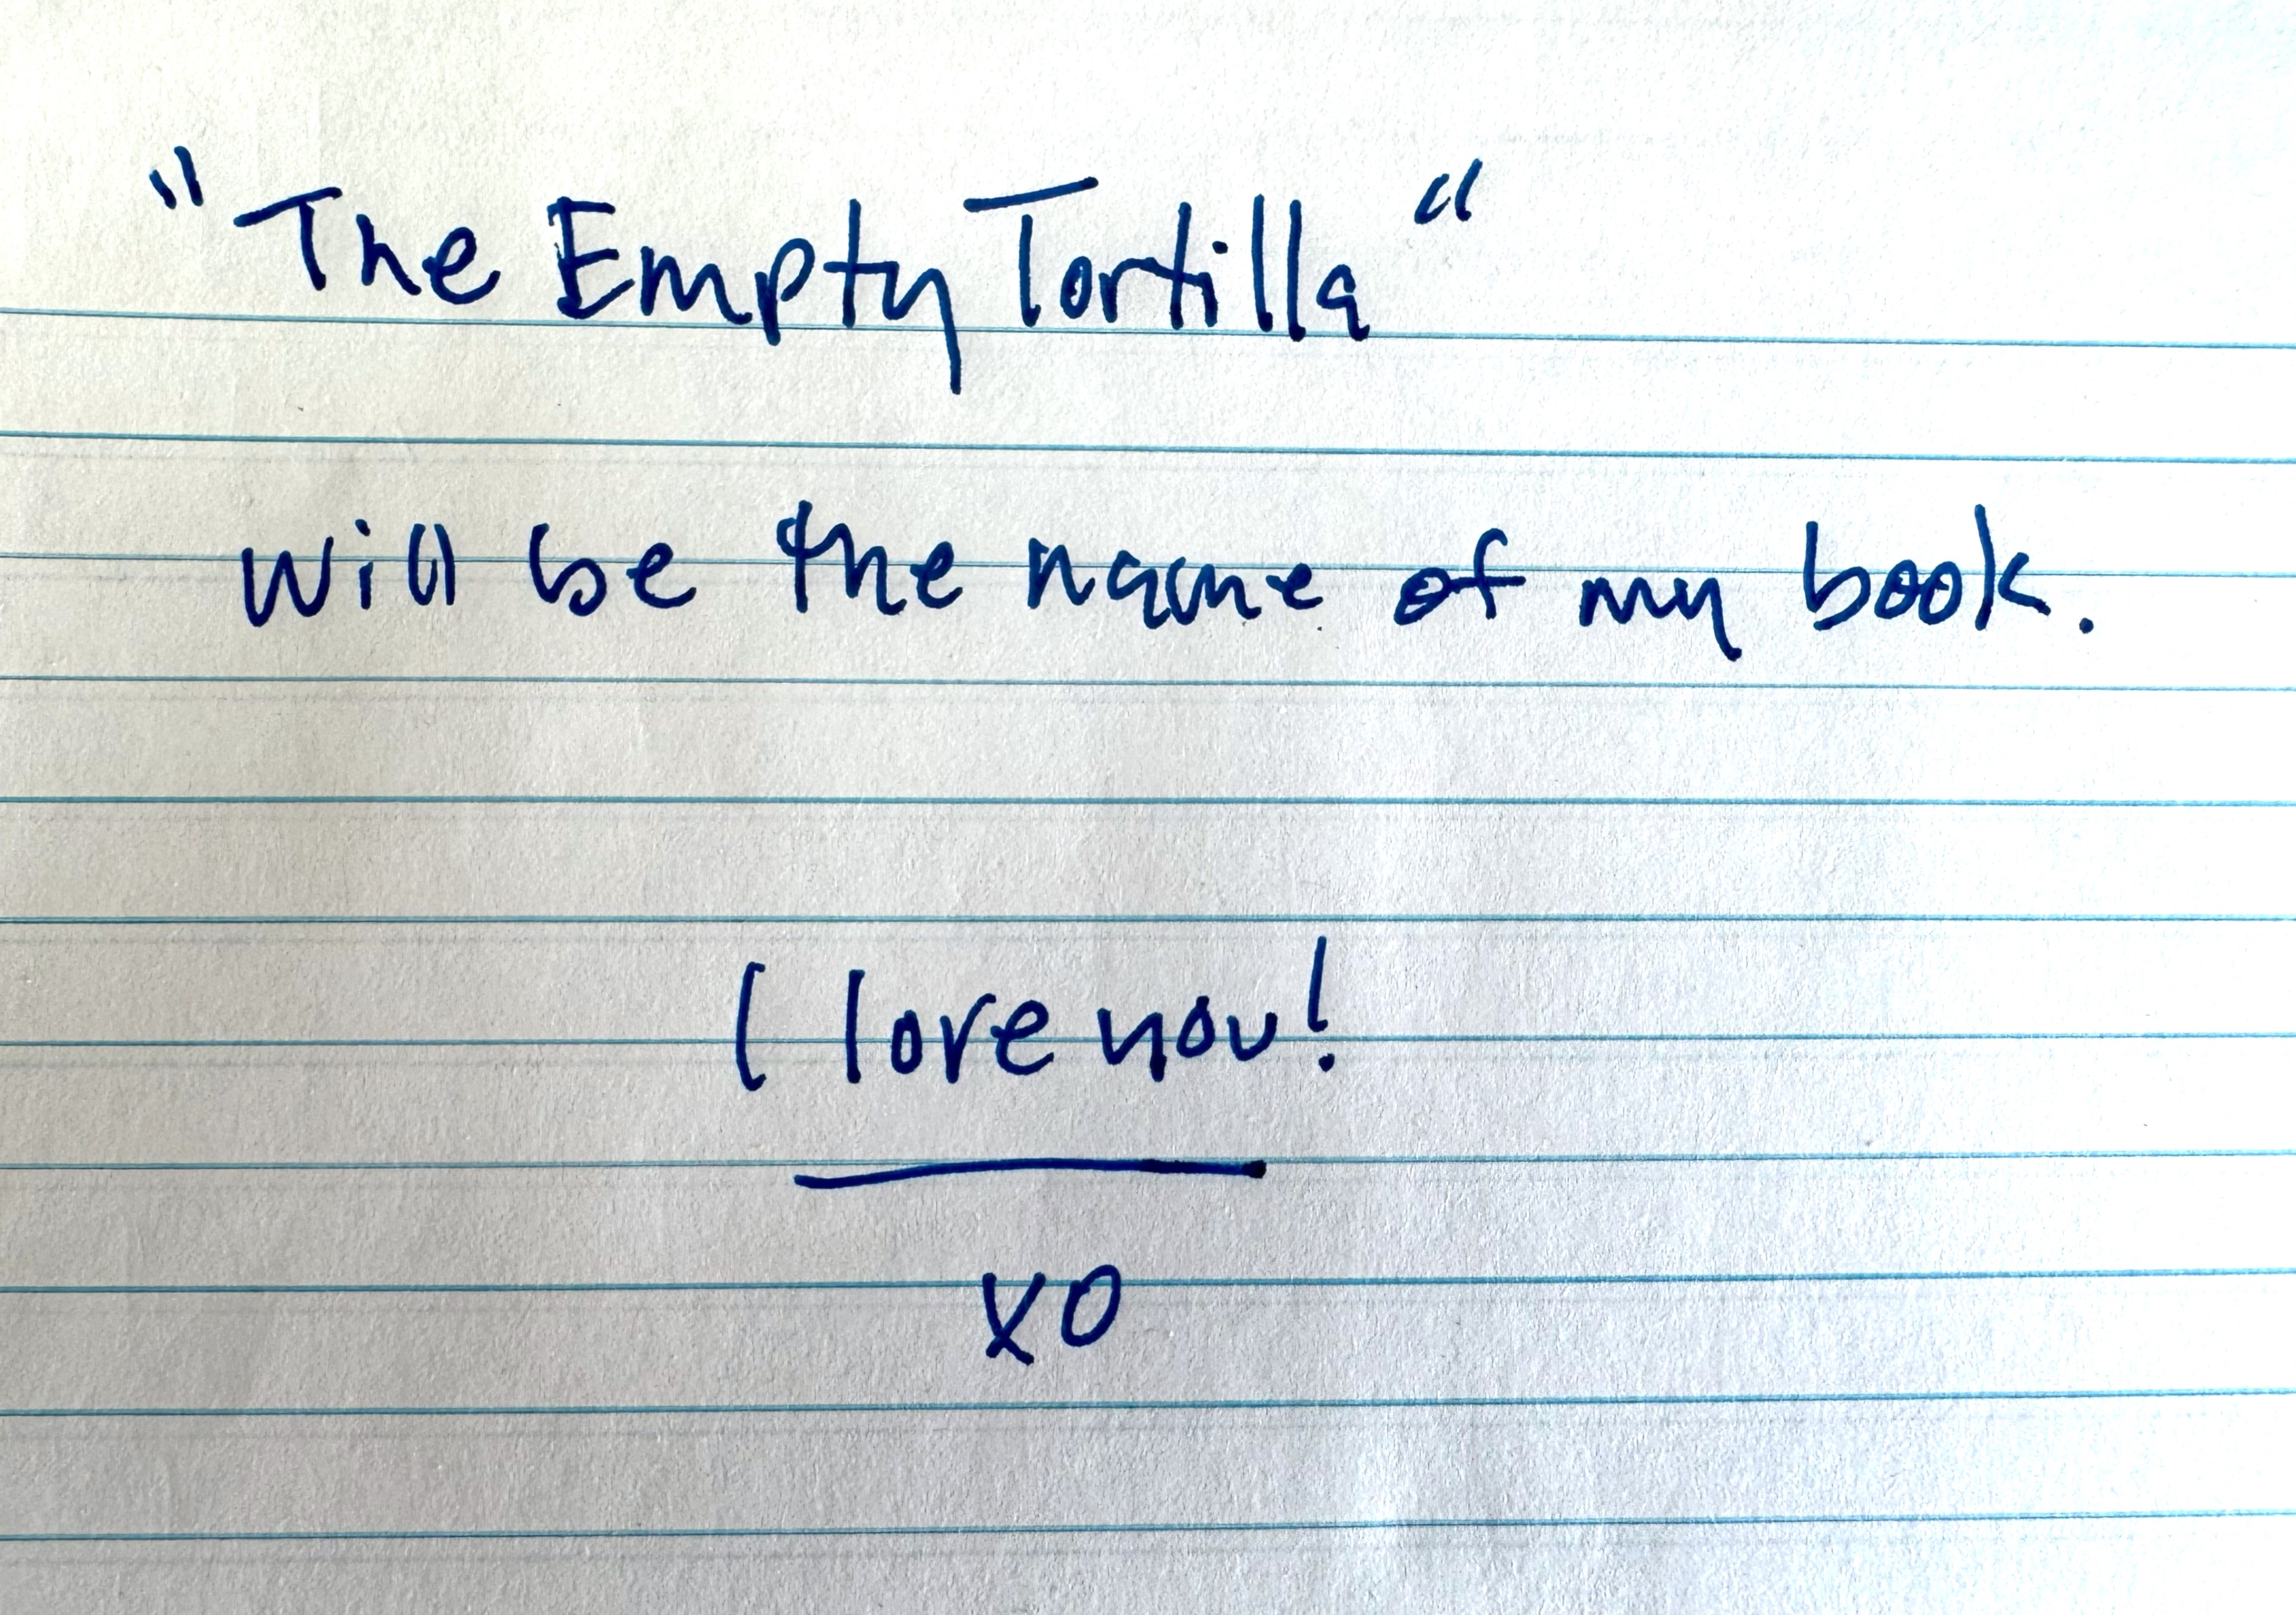 "The Empty Tortilla"
will be the name of my book.
I love you!
XO